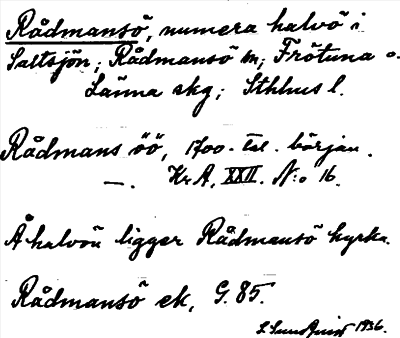 Rådmansö, numera halvö i
Saltsjön; Rådmansö sn; Frötuna o.
Länna skg; Sthlms l.
Rådmans öö, 1700-tal. början.
—. Kr A. XXII. N:o 16.
Å halvön ligger Rådmansö kyrka.
Rådmansö ek, G. 85.
S. Sundqvist 1936.